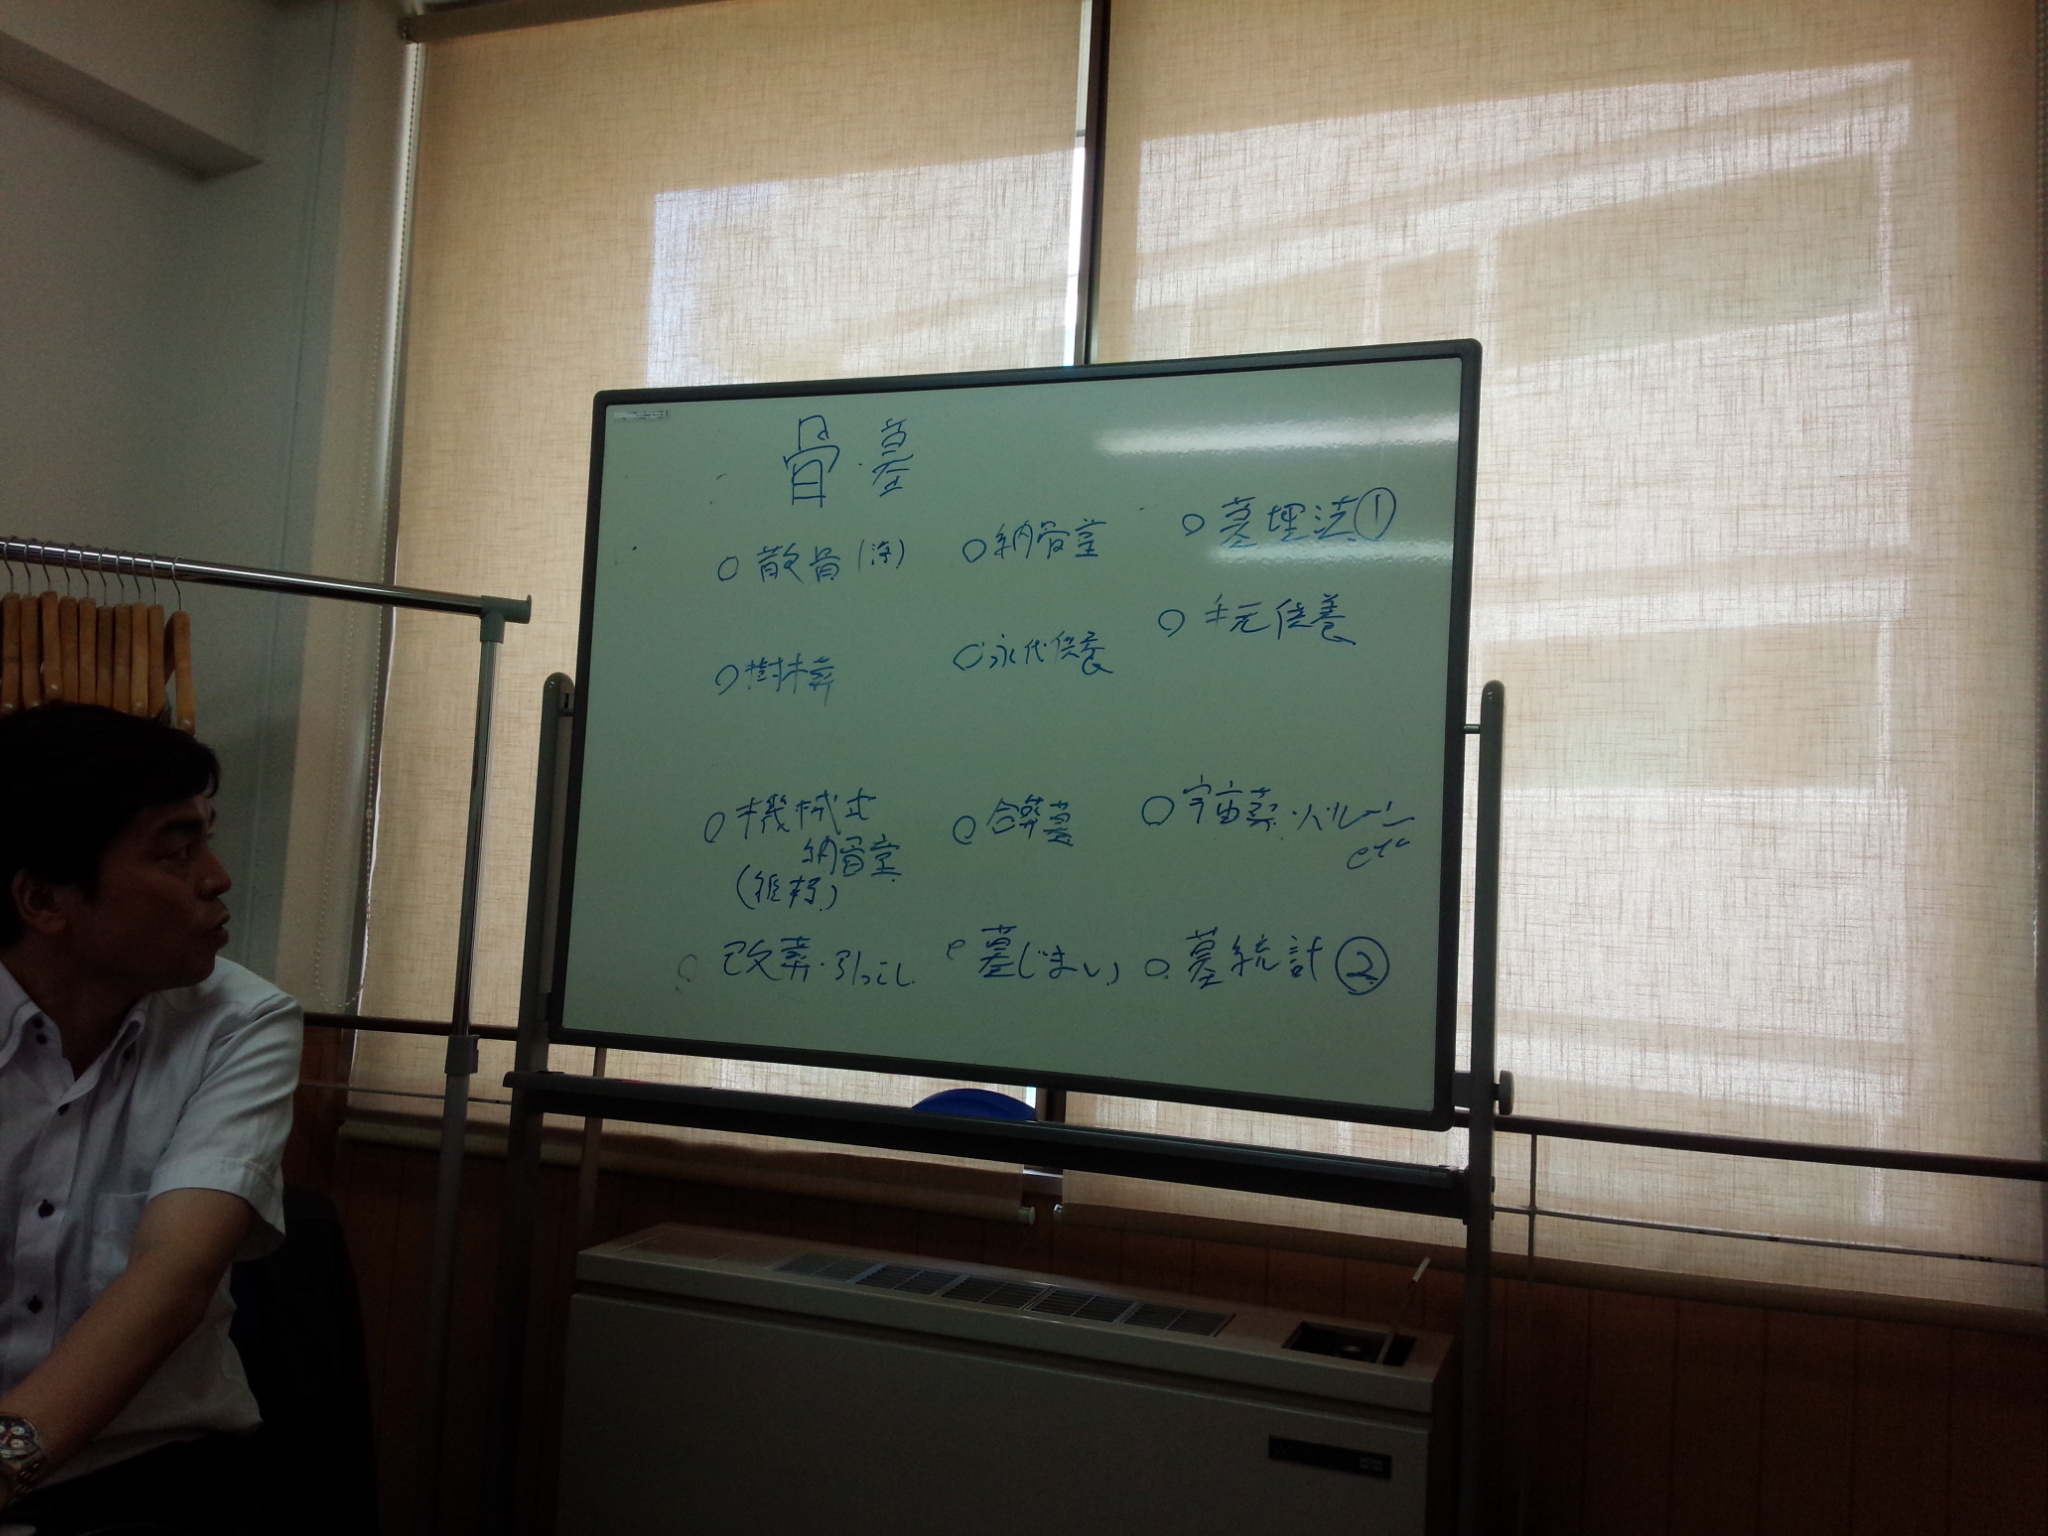 骨・墓
○散骨(海)
○納骨堂
○墓埋法①
○樹木葬
○永代供養
○手元供養
○機械式
納骨堂
○合葬墓
○宇宙葬・バルーン
etc
○改葬・引っこし
○墓じまい
○墓統計②